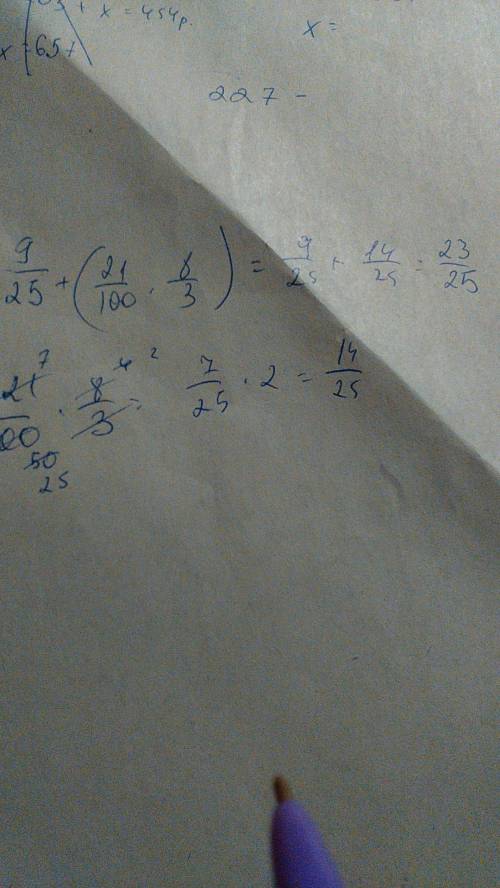 + x = 454р.
x = 65
x =
227 -
9/25 + (21/100 · 8/3) = 9/25 + 14/25 = 23/25
21/00 · 8/3 = 7/25 · 2 = 14/25
7 4 2
50
25